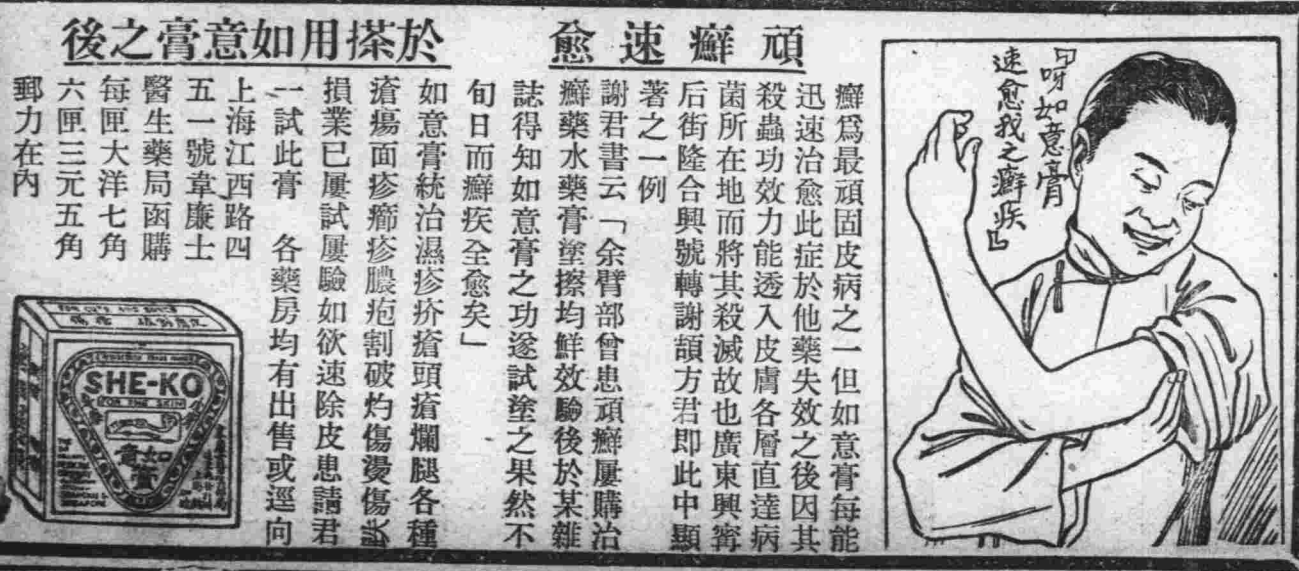 頑癬速愈
於搽用如意膏之後
『呀如意膏
速愈我之癬疾』
癬爲最頑固皮病之一但如意膏每能
迅速治愈此症於他藥失效之後因其
殺蟲功效力能透入皮膚各層直達病
菌所在地而將其殺滅故也廣東興甯
后街隆合興號轉謝頡方君即此中顯
著之一例
謝君書云「余臂部曾患頑癬屢購治
癬藥水藥膏塗擦均鮮效驗後於某雜
誌得知如意膏之功遂試塗之果然不
旬日而癬疾全愈矣」
如意膏統治濕疹疥瘡頭瘡爛腿各種
瘡瘍面疹癤疹膿疱割破灼傷燙傷
損業已屢試屢驗如欲速除皮患請君
一試此膏 各藥房均有出售或逕向
上海江西路四
五一號韋廉士
醫生藥局函購
每匣大洋七角
六匣三元五角
郵力在內
SHE-KO
FOR THE SKIN
如意
膏